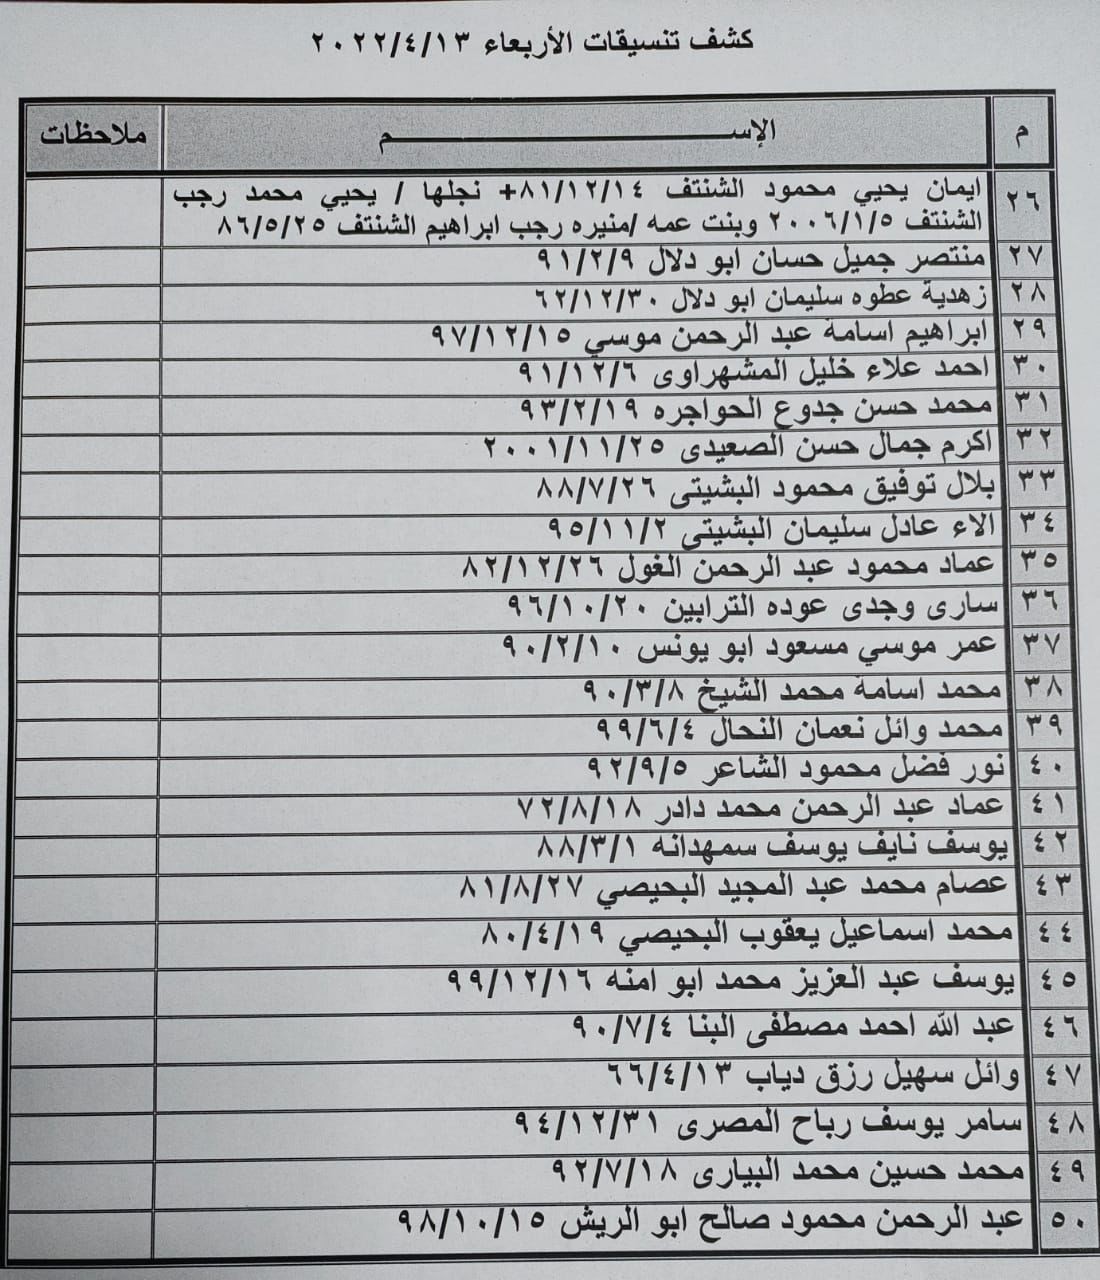 كشف تنسيقات الأربعاء ٢٠٢٢/٤/١٣
م الإســـــــم ملاحظات
٢٦ ايمان يحيي محمود الشنتف ٨١/١٢/١٤+ نجلها / يحيي محمد رجب
الشنتف ٢٠٠٦/١/٥ وبنت عمه /منيره رجب ابراهيم الشنتف ٨٦/٥/٢٥
٢٧ منتصر جميل حسان ابو دلال ٩١/٢/٩
٢٨ زهدية عطوه سليمان ابو دلال ٦٢/١٢/٣٠
٢٩ ابراهيم اسامة عبد الرحمن موسي ٩٧/١٢/١٥
٣٠ احمد علاء خليل المشهراوى ٩١/١٢/٦
٣١ محمد حسن جدوع الحواجره ٩٣/٢/١٩
٣٢ اكرم جمال حسن الصعيدى ٢٠٠١/١١/٢٥
٣٣ بلال توفيق محمود البشيتى ٨٨/٧/٢٦
٣٤ الاء عادل سليمان البشيتى ٩٥/١١/٢
٣٥ عماد محمود عبد الرحمن الغول ٨٢/١٢/٢٦
٣٦ سارى وجدى عوده الترابين ٩٦/١٠/٢٠
٣٧ عمر موسي مسعود ابو يونس ٩٠/٢/١٠
٣٨ محمد اسامة محمد الشيخ ٩٠/٣/٨
٣٩ محمد وائل نعمان النحال ٩٩/٦/٤
٤٠ نور فضل محمود الشاعر ٩٢/٩/٥
٤١ عماد عبد الرحمن محمد دادر ٧٢/٨/١٨
٤٢ يوسف نايف يوسف سمهدانه ٨٨/٣/١
٤٣ عصام محمد عبد المجيد البحيصي ٨١/٨/٢٧
٤٤ محمد اسماعيل يعقوب البحيصي ٨٠/٤/١٩
٤٥ يوسف عبد العزيز محمد ابو امنه ٩٩/١٢/١٦
٤٦ عبد الله احمد مصطفى البنا ٩٠/٧/٤
٤٧ وائل سهيل رزق دياب ٦٦/٤/١٣
٤٨ سامر يوسف رباح المصرى ٩٤/١٢/٣١
٤٩ محمد حسين محمد البيارى ٩٢/٧/١٨
٥٠ عبد الرحمن محمود صالح ابو الريش ٩٨/١٠/١٥